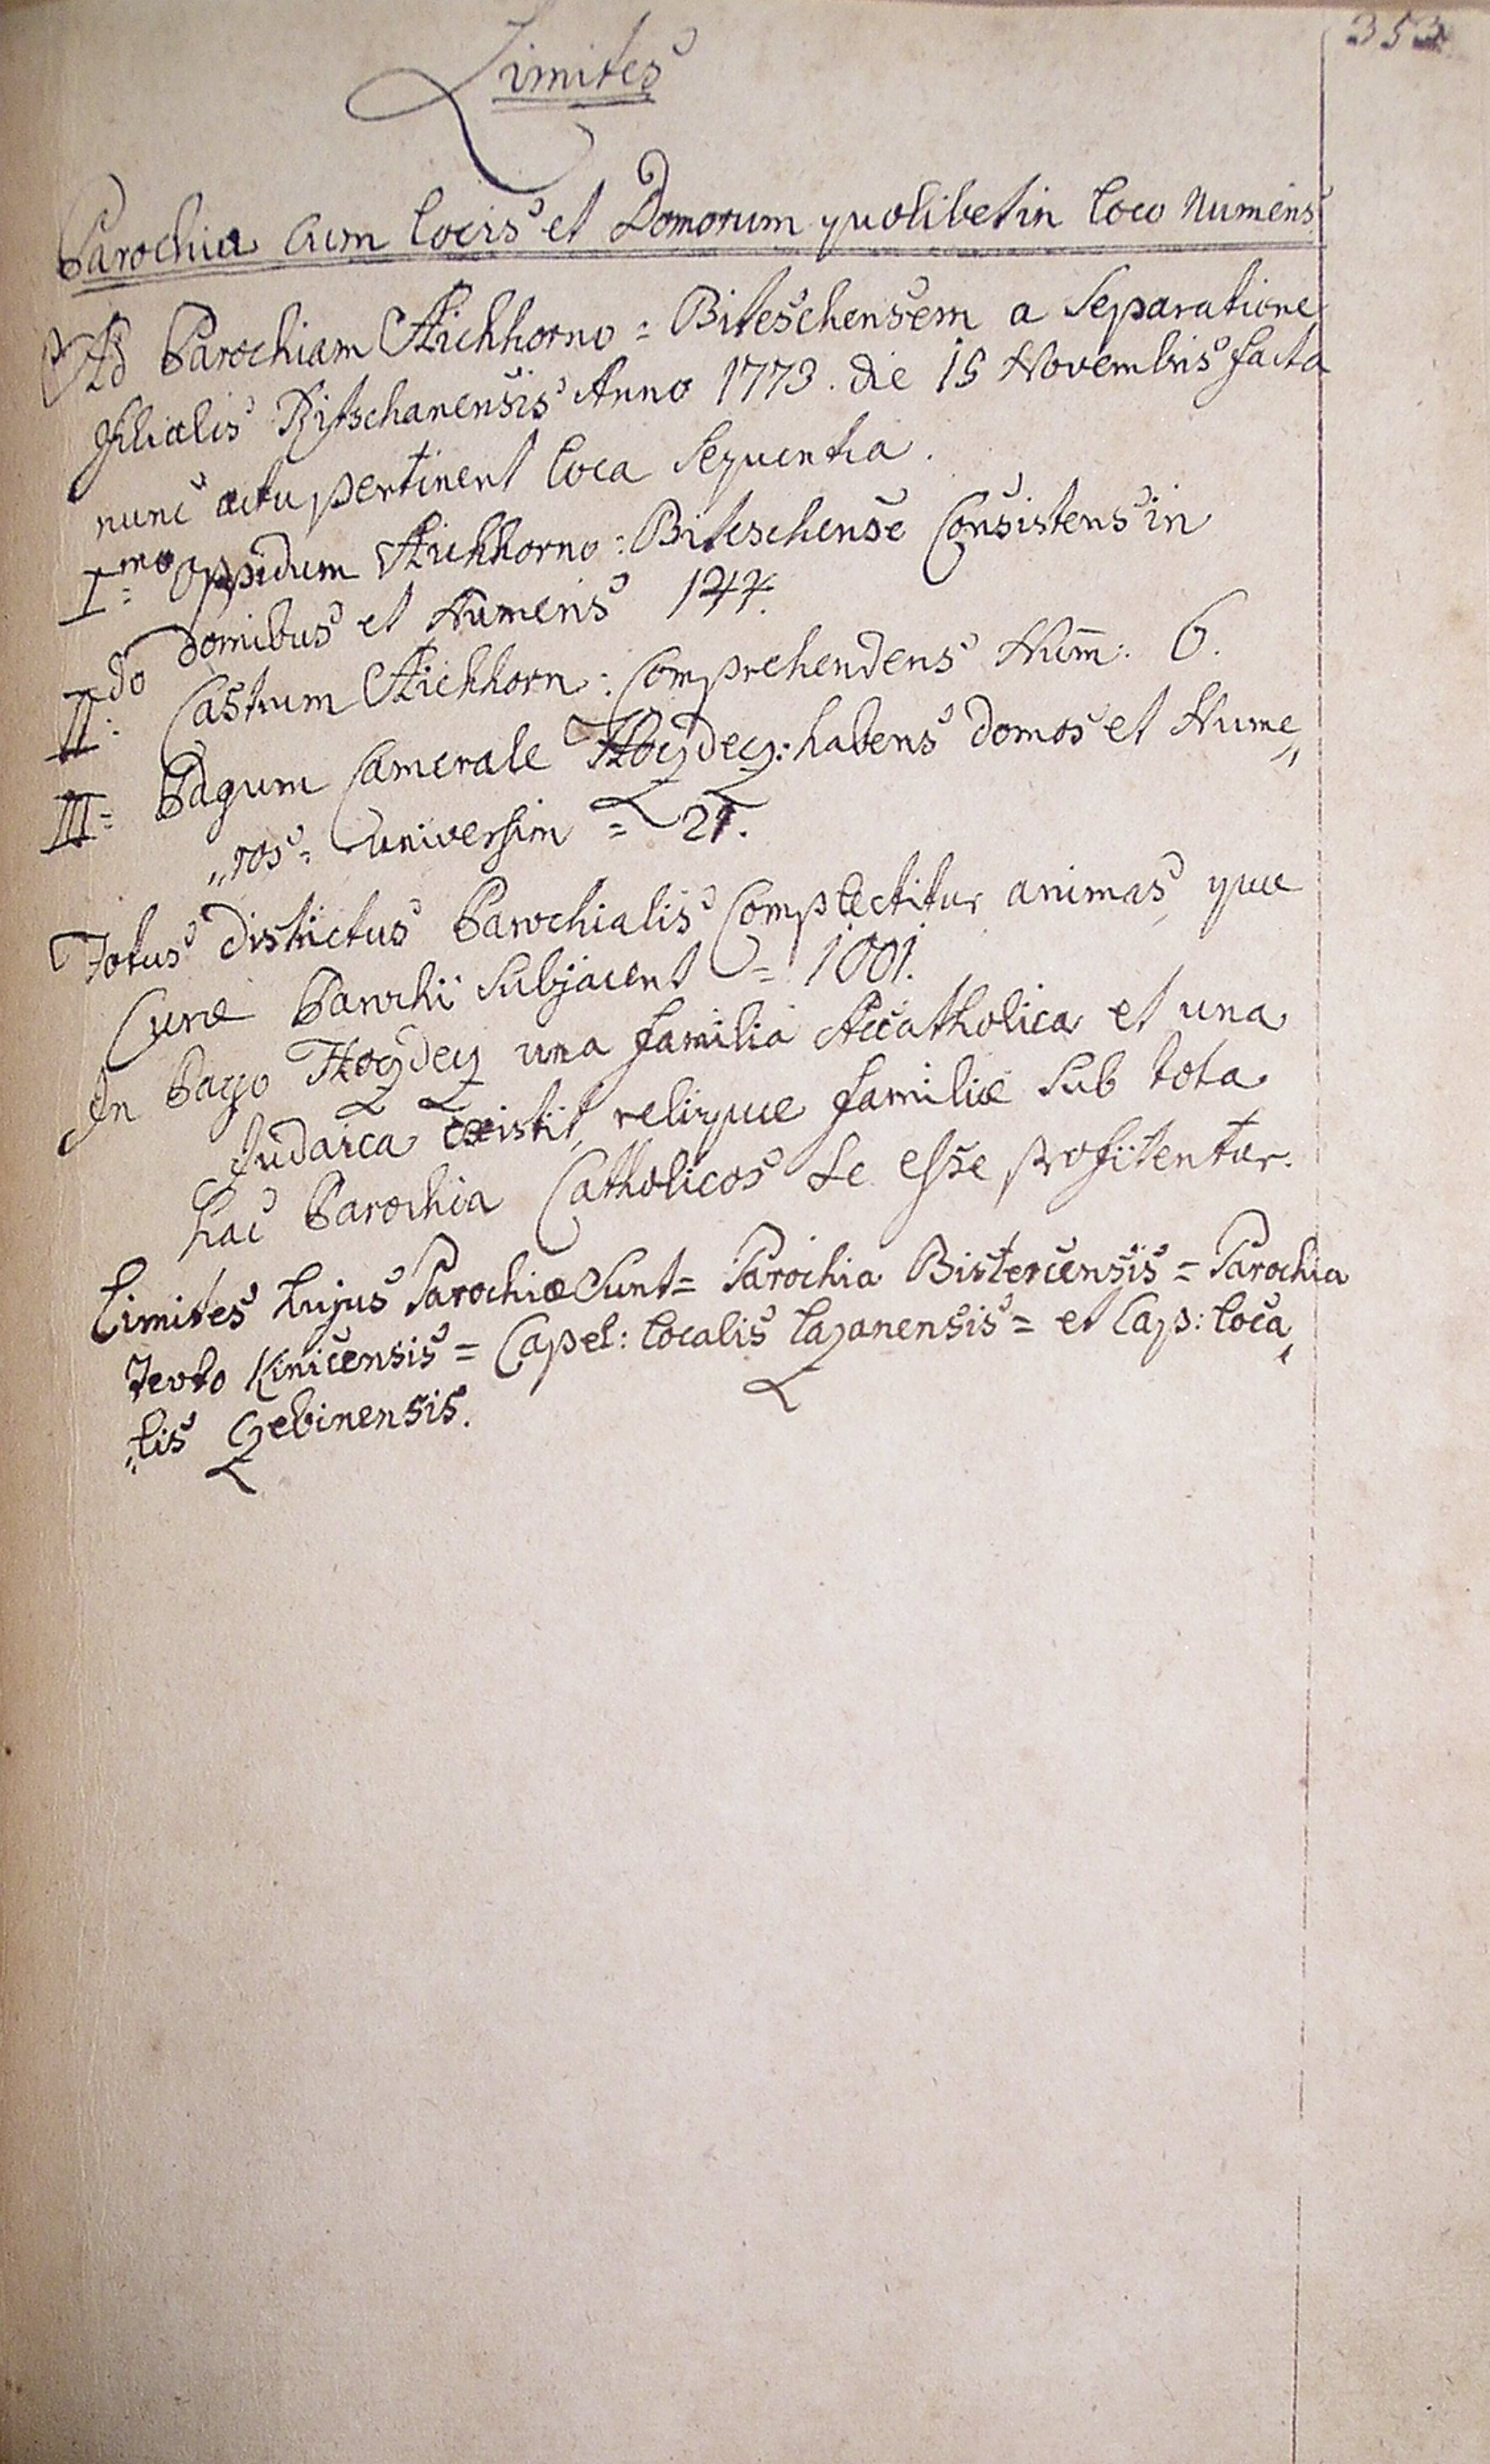 353
Limites
Parochia cum locis et Domorum quolibet in loco Numeris
Ad Parochiam Aichhorno = Biteschensem a Separatione
Filialis Ritschanensis Anno 1773. die 15 Novembris facta
nunc actu pertinent loca sequentia.
I=mo Oppidum Aichhorno = Biteschense Consistens in
domibus et Numeris 144.
II=do Castrum Aichhorn: Comprehendens Num̅: 6.
III= Pagum Camerale Hozdecz: habens domos et Nume„
„ros = universim = 21.
Totus districtus Parochialis Complectitur animas, que
Cure Parochi Subjacent = 1001.
In Pago Hozdecz una familia Accatholica et una
Judaica existit, relique familiæ Sub tota
hac Parochia Catholicos se esse profitentur.
Limites hujus Parochiæ Sunt = Parochia Bistercensis = Parochia
Kinicensis = Capel: localis Lazanensis = et Cap: loca„
„lis Zebinensis.